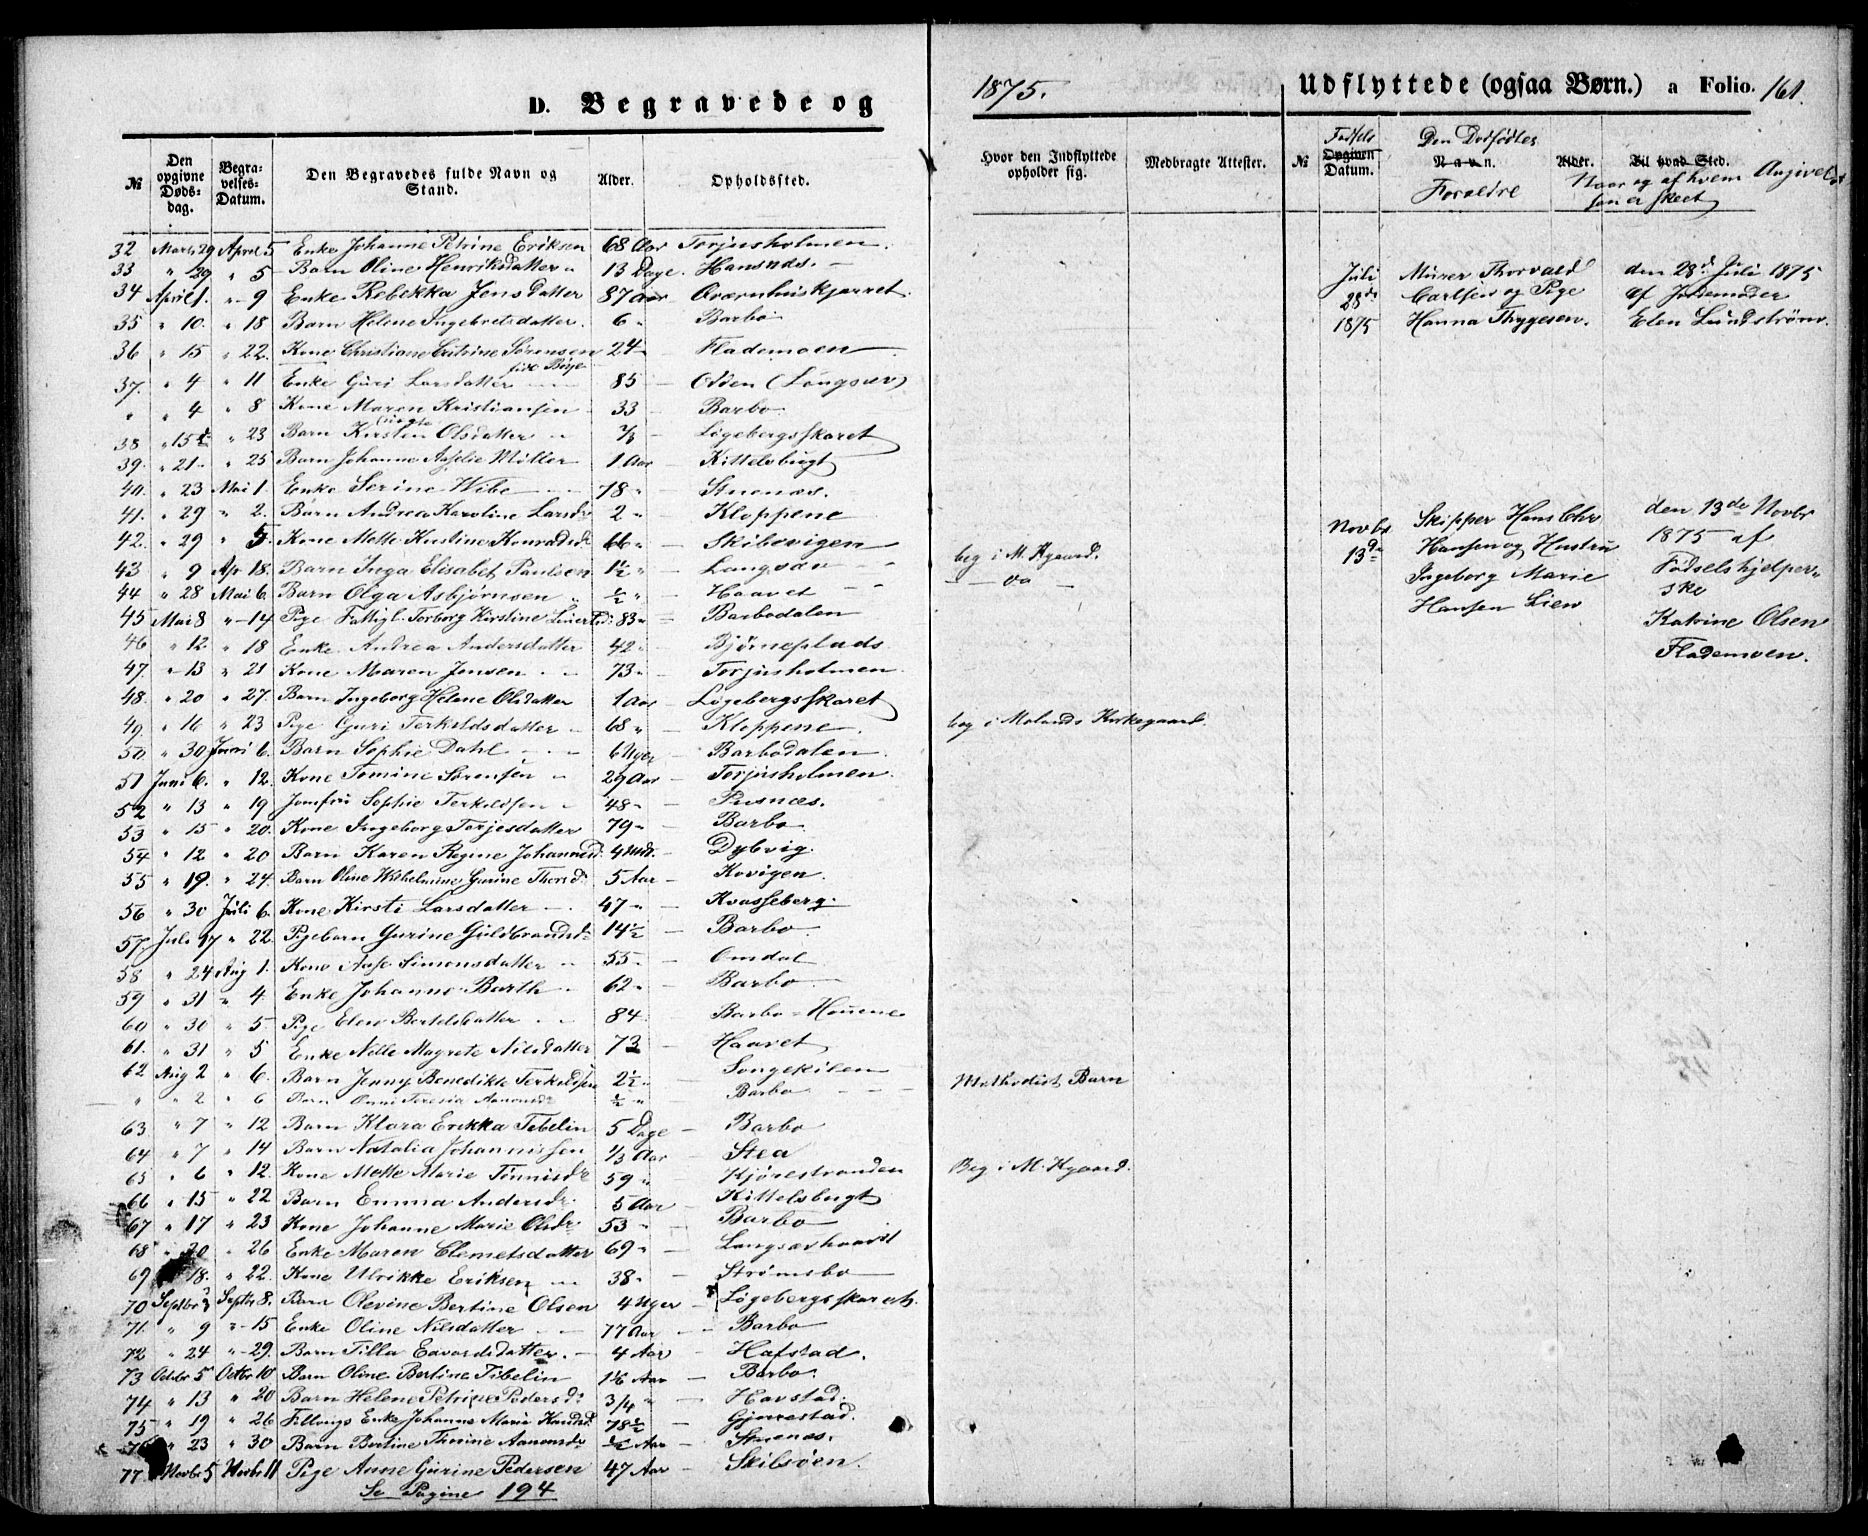 D. Begravede og
1875.
Udflyttede (ogsaa Børn.) a Folio. 161.
№ Den opgivne Dødsdag. Begravelses-Datum. Den Begravedes fulde Navn og Stand. Alder. Opholdssted.
Hvor den Indflyttede opholder sig. Medbragte Attester. № Opgiven Datum. Navn. Alder. Til hvad Sted.
Fødsels Den Dødfødtes Forældre Naar og af hvem Angivelsen er skeet
32 Marts 29 April 5 Enke Johanne Petrine Eriksen 68 Aar Torjusholmen.
33 " 29 " 5 Barn Oline Henriksdatter 13 Dage. Hansnæs.
34 April 1. " 9 Enke Rebekka Jensdatter 87 Aar Qværnhuskjærret.
35 " 10. " 18 Barn Helene Ingebretsdatter. 6 Barbo
36 " 15 " 22. Kone Christiane Catrine Sørensen 24 Flademoen
37. " 4 " 11 Enke Guri Larsdatter 85 Odden (Langsæv)
" " 4 " 8 Kone Maren Kristiansen 33 Barbo.
38 " 15 " 23 Barn Kirsten Olsdatter Løgebergsskaret
39. " 21 " 25 Barn Johanne Møller 1 Aar Kittelsbugt
40. " 23 Mai 1. Enke Serine Wibe 78 " Stuenæs.
41. " 29 " 2. Barn Andrea Karoline Larsdr 2 " Kloppene
42. " 29 " 5. Kone Mette Kirstine Konradsdr 66 " Skibsvigen
43 " 9 Apr 18. Barn Inga Elisabet Paulsen 1½ " Langsæv beg i M. Kgaard.
44 " 28 Mai 6. Barn Olga Asbjørnsen ½ " Haavet — do —
45 Mai 8 " 14 Pige Fattigl. Torborg Kirstine 83 " Barbodalen
46 " 12 " 18 Enke Andrea Andersdatter 42 " Bjørneplads
47. " 13 " 21 Kone Maren Jensen 73 " Torjusholmen
48. " 20 " 27. Barn Ingeborg Helene Olsdatter 1 Aar Løgebergsskaret
49 " 16 " 23 Pige Guri Terkildsdatter 68 " Kloppene. beg i Molands Kirkegaard.
50 " 30 Juni 6. Barn Sophie Dahl 6 Uger Barbodalen
51 Juni 6. " 12. Kone Tomine Sørensen 29 Aar Torjusholmen
52 " 13 " 19 Jomfru Sophie Terkildsen 48 " Pusnæs.
53 " 15 " 20. Kone Ingeborg Terjesdatter 79 " Barbo
54 " 12 " 20 Barn Karen Regine Johannesd. 4 Mdr. Dybvig.
55 " 19. " 24. Barn Oline Wilhelmine Gurine Thorsd. 5 Aar Kovigen.
56 " 30 Juli 6. Kone Kirsti Larsdatter 47 " Kvasseberg.
57. Juli 17 " 22. Pigebarn Gurine Guldbrandsd. 14½ Barbo.
58 " 24 Aug 1. Kone Aase Simonsdatter 55 Omdal
59 " 31 " 4. Enke Johanne Barth 62 " Barbo
60 " 30 " 5. Pige Elen Bertelsdatter 84. Barbo =
61. " 31 " 5 Enke Nille Magrete Nilsdatter 73 Haavet
62 Aug 2 " 6. Barn Jenny Benedikte Terkildsen 2½ " Songekilen Methodist Barn
" " 2 " 6 Barn Teresia Aanonsdr ½ " Barbo
63. " 7 " 12 Barn Klara Erikka Tibelin 5 Dage Barbo
64 " 7 " 14 Barn Natalia Johannissen ⅓ Aar Stea
65 " 6 " 12. Kone Mette Marie Tønnisdr 59 " Kjørestranden Beg i M. Kgaard.
66 " 15 " 22 Barn Emma Andersdr. 5 Aar Kittelsbugt
67 " 17 " 23 Kone Johanne Marie Olsdr 53 " Barbo
68 " 20 " 26 Enke Maren Clemetsdatter 69 " Langsævhavet
69 18. " 22. Kone Ulrikke Eriksen 38 " Strømsbo
70 Septbr 3 Septbr 8. Barn Olevine Bertine Olsen 4 Uger Løgebergsskaret.
71. " 9 " 15 Enke Oline Nilsdatter 77 Aar Barbo
72 " 24 " 29. Barn Tilla Edvardsdatter. 4 Aar Hafstad.
73 Octbr 5 Octbr 10 Barn Oline Bertine Tibelin 1⅙ Aar Barbo.
74 " 13 " 20 Barn Helene Petrine Pedersdr 3/4 " Havstad.
75 " 19 " 26 Fillings Enke Johanne Marie Knudsd. 78½ Gjerrestad.
76 " 23 " 30 Barn Bertine Aanonsdr ½ Aar Stuenæs.
77. Novbr 5 Novbr 11 Pige Anne Gurine Pedersen 47 Aar Skilsøen.
Se Pagina 194
Juli 28de 1875
Murer Thorvald Carlsen og Pige Hanna Thygesen.
den 28d Juli 1875 af Jordemoder Elen Lundstrøm.
Novbr 13de
Skipper Hans Chr Hansen og Hustru Ingeborg Marie Hansen Lien
den 13de Novbr 1875 af Fødselshjelperske Katrine Olsen Flademoen.